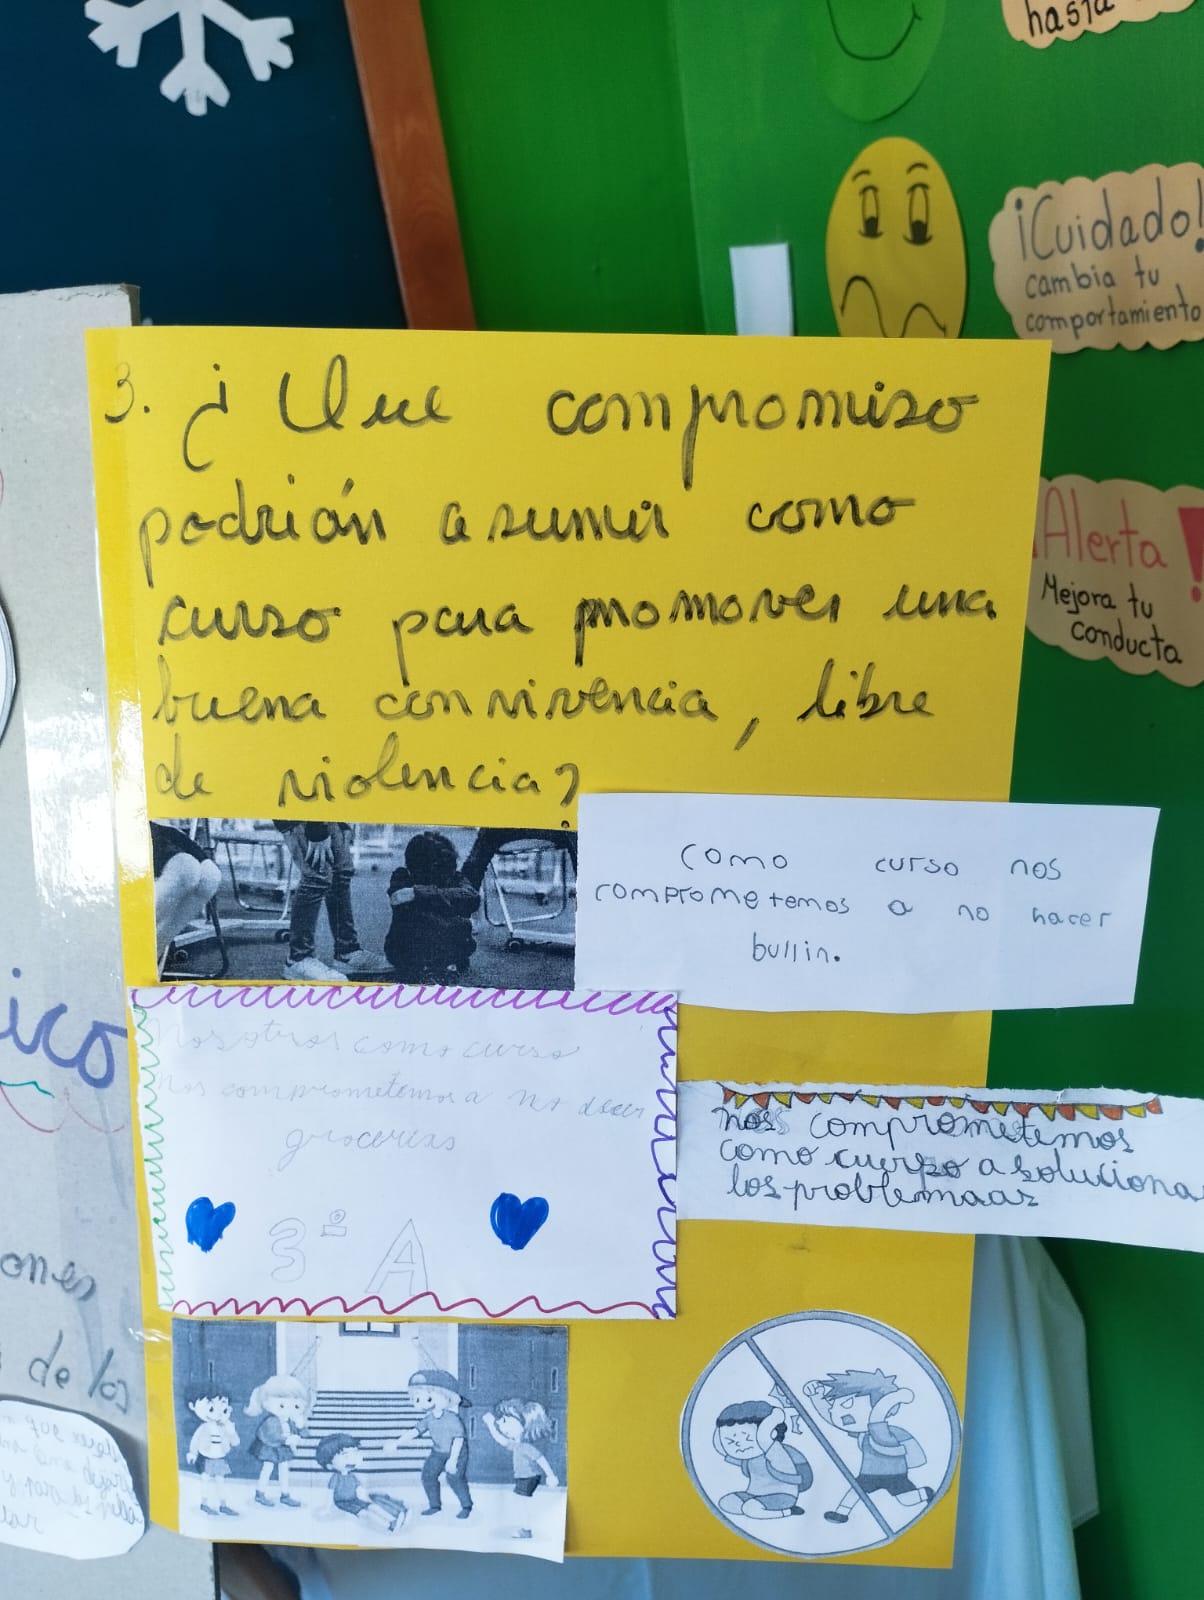 hasta
¡Cuidado!
cambia tu
comportamiento
¡Alerta!
Mejora tu
conducta
3. ¿Que compromiso
podrián asumir como
curso para promover una
buena convivencia, libre
de violencia?
como curso nos
comprometemos a no hacer
bullin.
Nosotros como curso
nos comprometemos a no decir
grocerias
3° A
nos comprometemos
como cuerpo a soluciona
los problemaas
ico
ones
de los